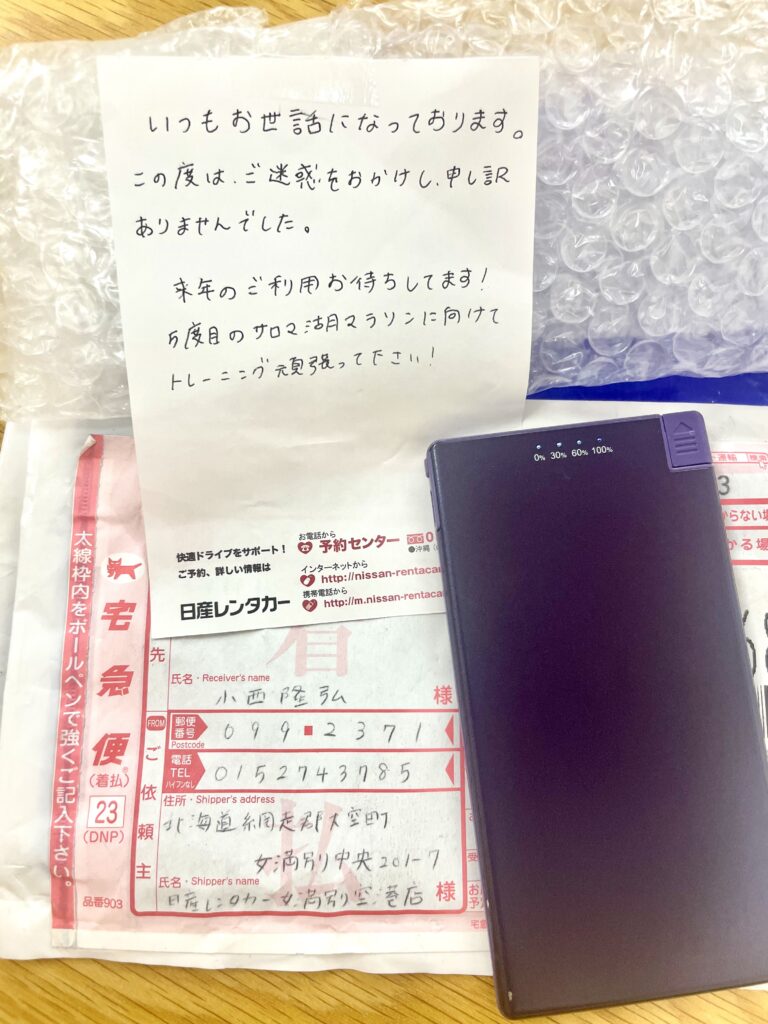 いつもお世話になっております。
この度は、ご迷惑をおかけし、申し訳
ありませんでした。
来年のご利用お待ちしてます！
5度目のサロマ湖月マラソンに向けて
トレーニング頑張って下さい！
快適ドライブをサポート！
ご予約、詳しい情報は
日産レンタカー
お電話から
予約センター
●沖縄
インターネットから
http://nissan-rentaca
携帯電話から
http://m.nissan-rentaca
0% 30% 60% 100%
太線枠内をボールペンで強くご記入下さい。
宅急便
(着払)
23
(DNP)
品番903
着
払
先
氏名・Receiver's name
小西隆弘 様
FROM
ご依頼主
郵便番号
Postcode
099-2371
電話
TEL
ハイフンなし
0152743785
住所・Shipper's address
北海道網走郡大空町
女満別中央201-7
氏名・Shipper's name
日産レンタカー女満別空港店 様
3
からない場
かる場